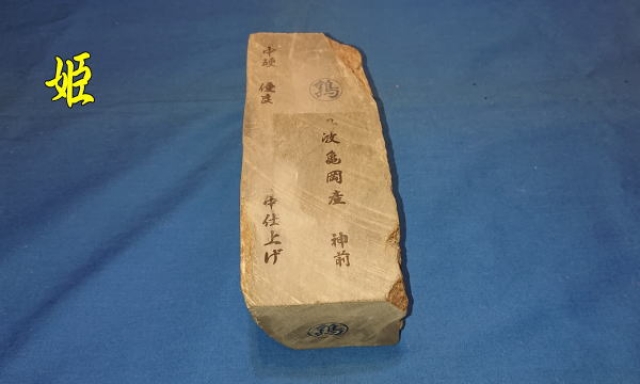 姫
鶴
波亀岡産 神前
中硬 優良
中仕上げ
鶴